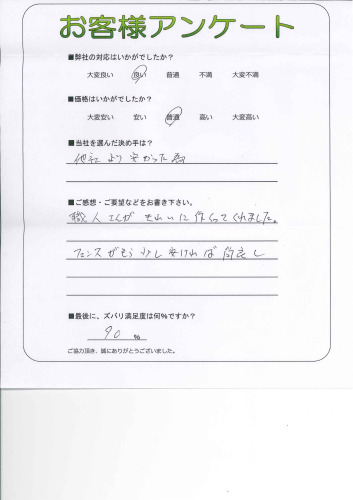 お客様アンケート
■弊社の対応はいかがでしたか？
大変良い 良い 普通 不満 大変不満
■価格はいかがでしたか？
大変安い 安い 普通 高い 大変高い
■当社を選んだ決め手は？
他社より安かった為
■ご感想・ご要望などをお書き下さい。
職人さんがきれいに作ってくれました。
フェンスがもう少し安ければ尚良し
■最後に、ズバリ満足度は何%ですか？
90 %
ご協力頂き、誠にありがとうございました。